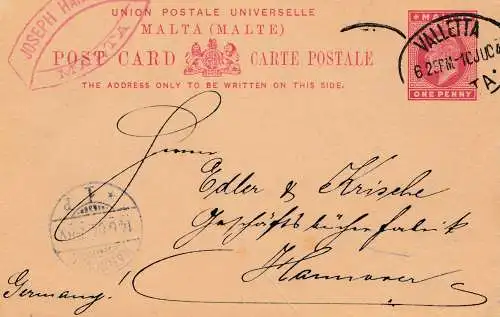 UNION POSTALE UNIVERSELLE
MALTA (MALTE)
POST CARD CARTE POSTALE
THE ADDRESS ONLY TO BE WRITTEN ON THIS SIDE.
JOSEPH
MALTA
ONE PENNY
VALLETTA
Herren
Edler & Krische
Geschäftsbücherfabrik
Hannover
Germany!